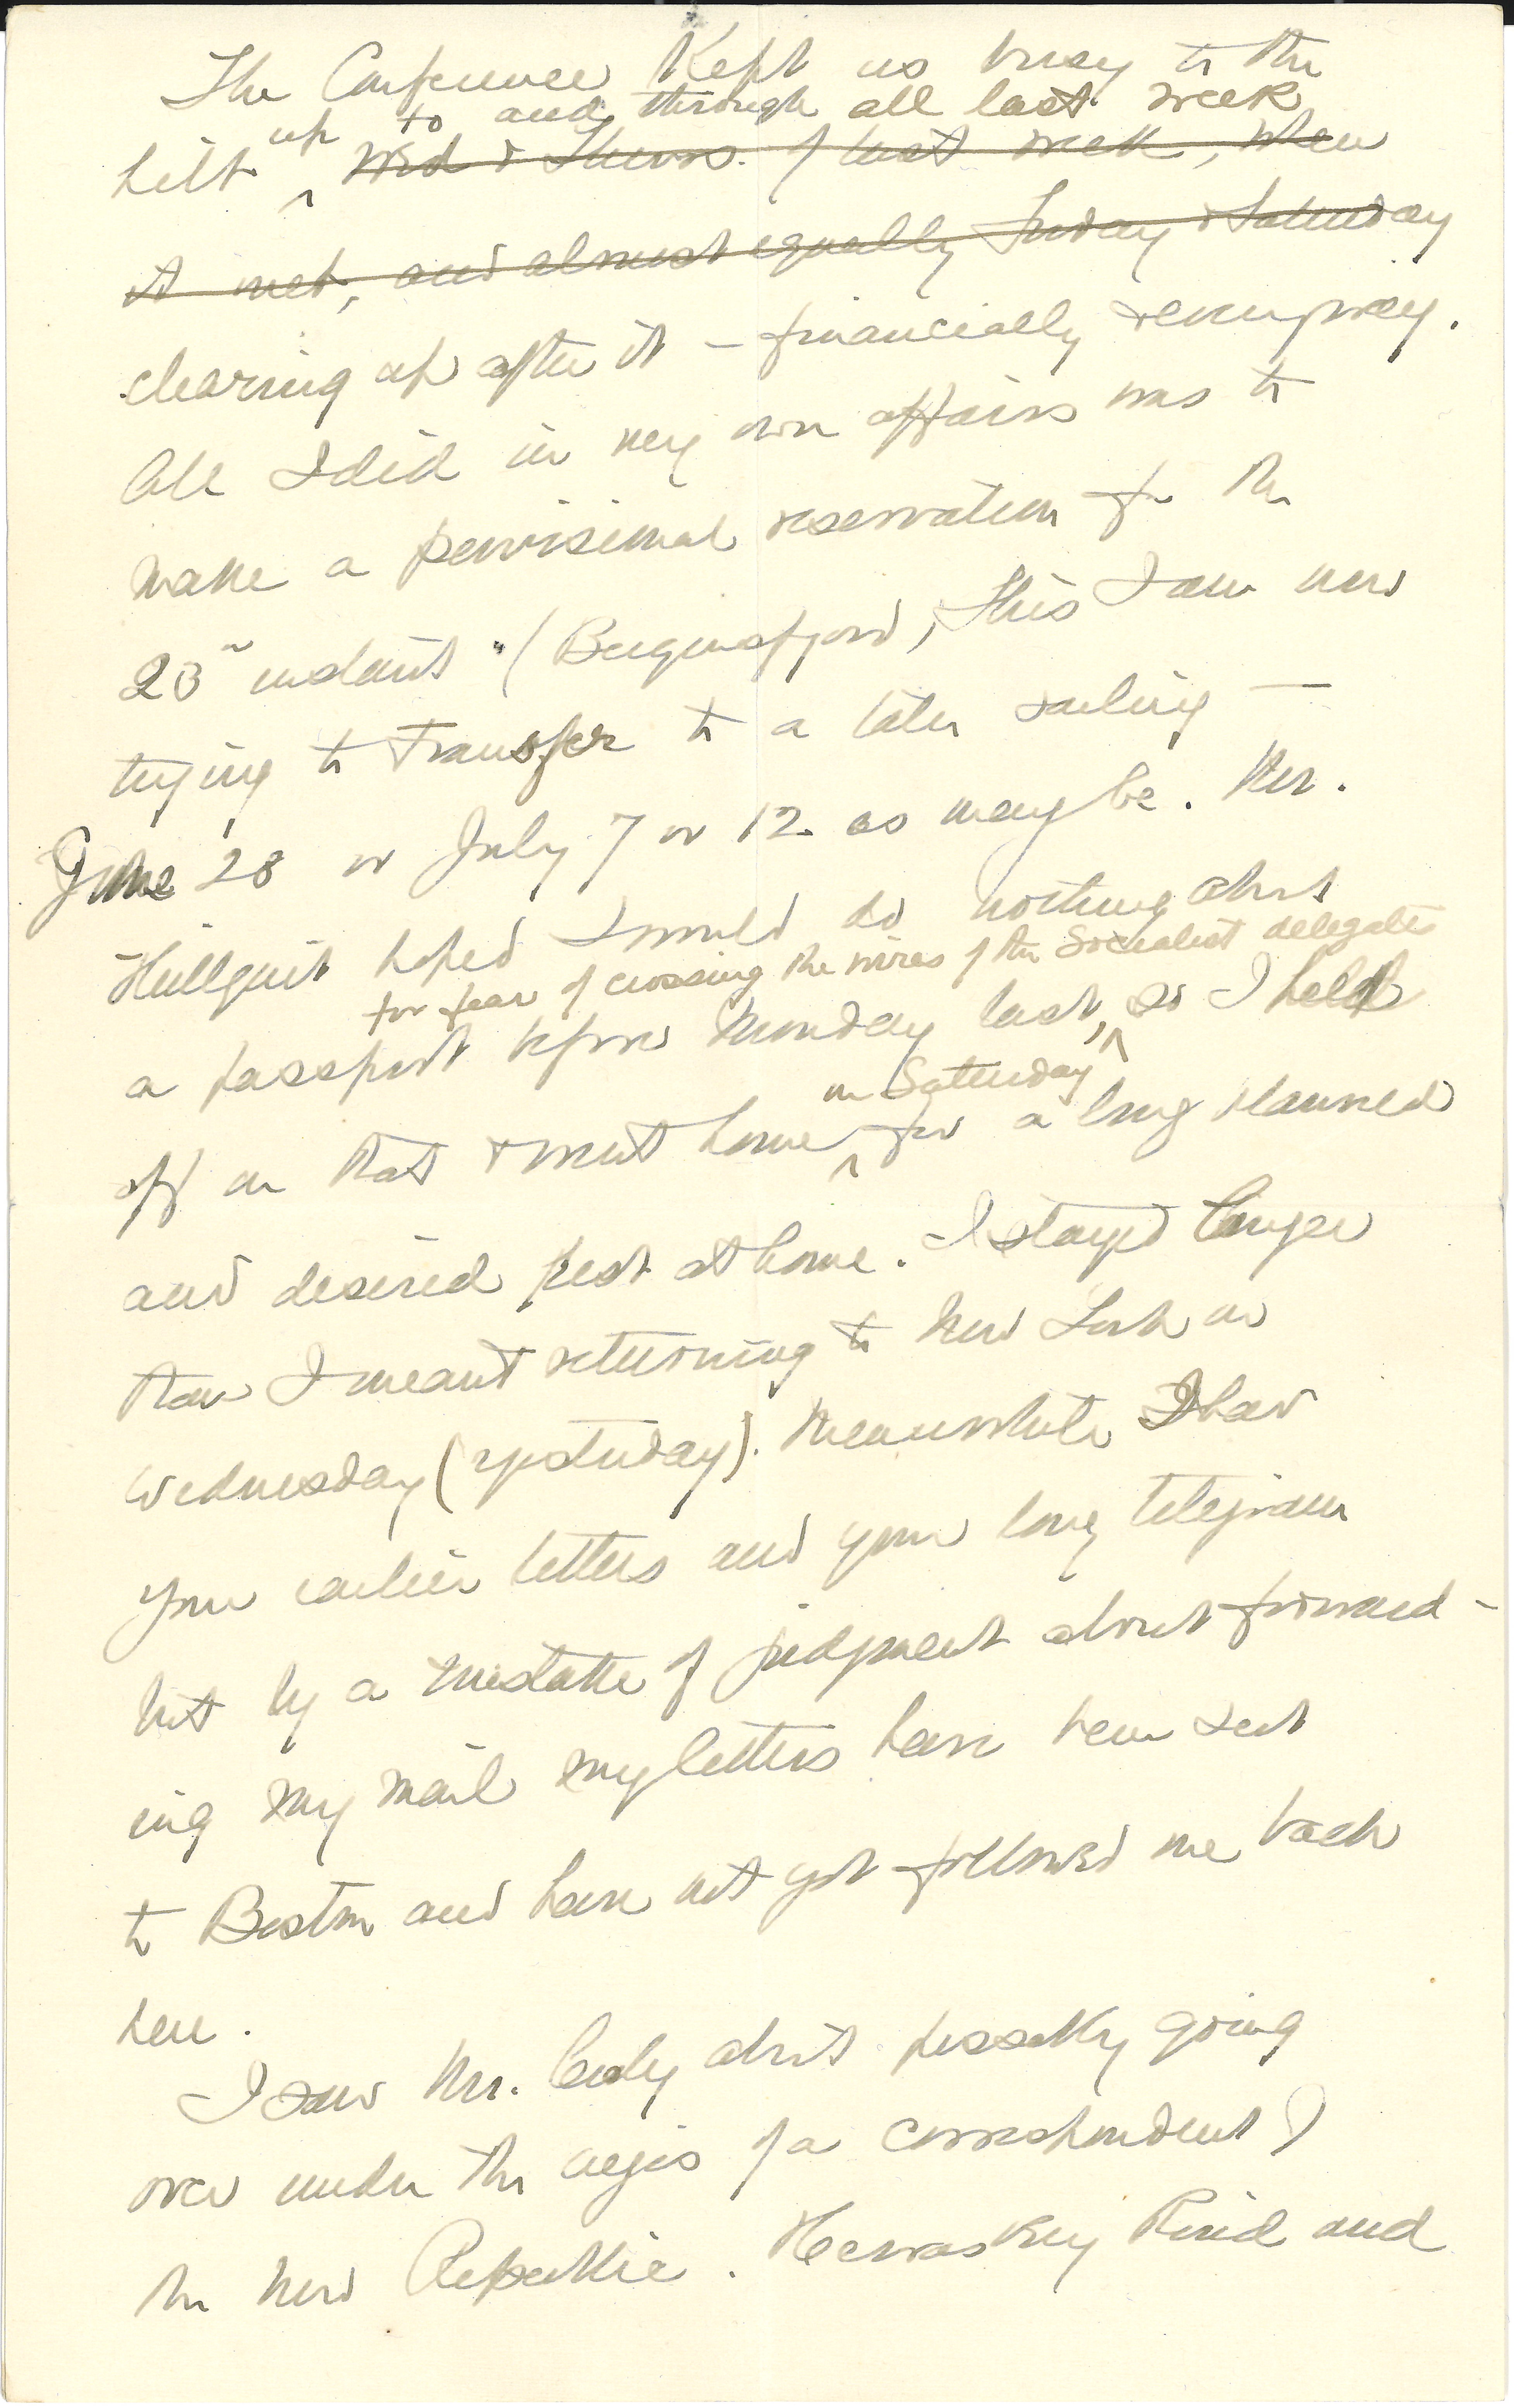 The Conference Kept us busy to the
up to and through all last week
hilt Wed & Thurs. of last week, when
it met, and almost equally Friday & Saturday
clearing up after it – financially & everyway.
All I did in my own affairs was to
make a provisional reservation for the
23rd instant (Bergensfjord, This I am now
trying to Transfer to a later sailing —
June 28 or July 7 or 12 as may be. Mr.
Hillquit hoped I would do nothing about
for fear of crossing the wires of the Socialist delegates
a passport before Monday last, so I held
on Saturday
off on that & went home for a long planned
and desired rest at home. I stayed longer
than I meant returning to New York on
Wednesday (yesterday). Meanwhile I have
your earlier letters and your long telegram
but by a mistake of judgment about forward-
ing my mail my letters have been sent
to Boston and have not yet followed me back
here.
I saw Mr. about possibly going
over under the aegis of a correspondent of
the New Republic. He was very Kind and